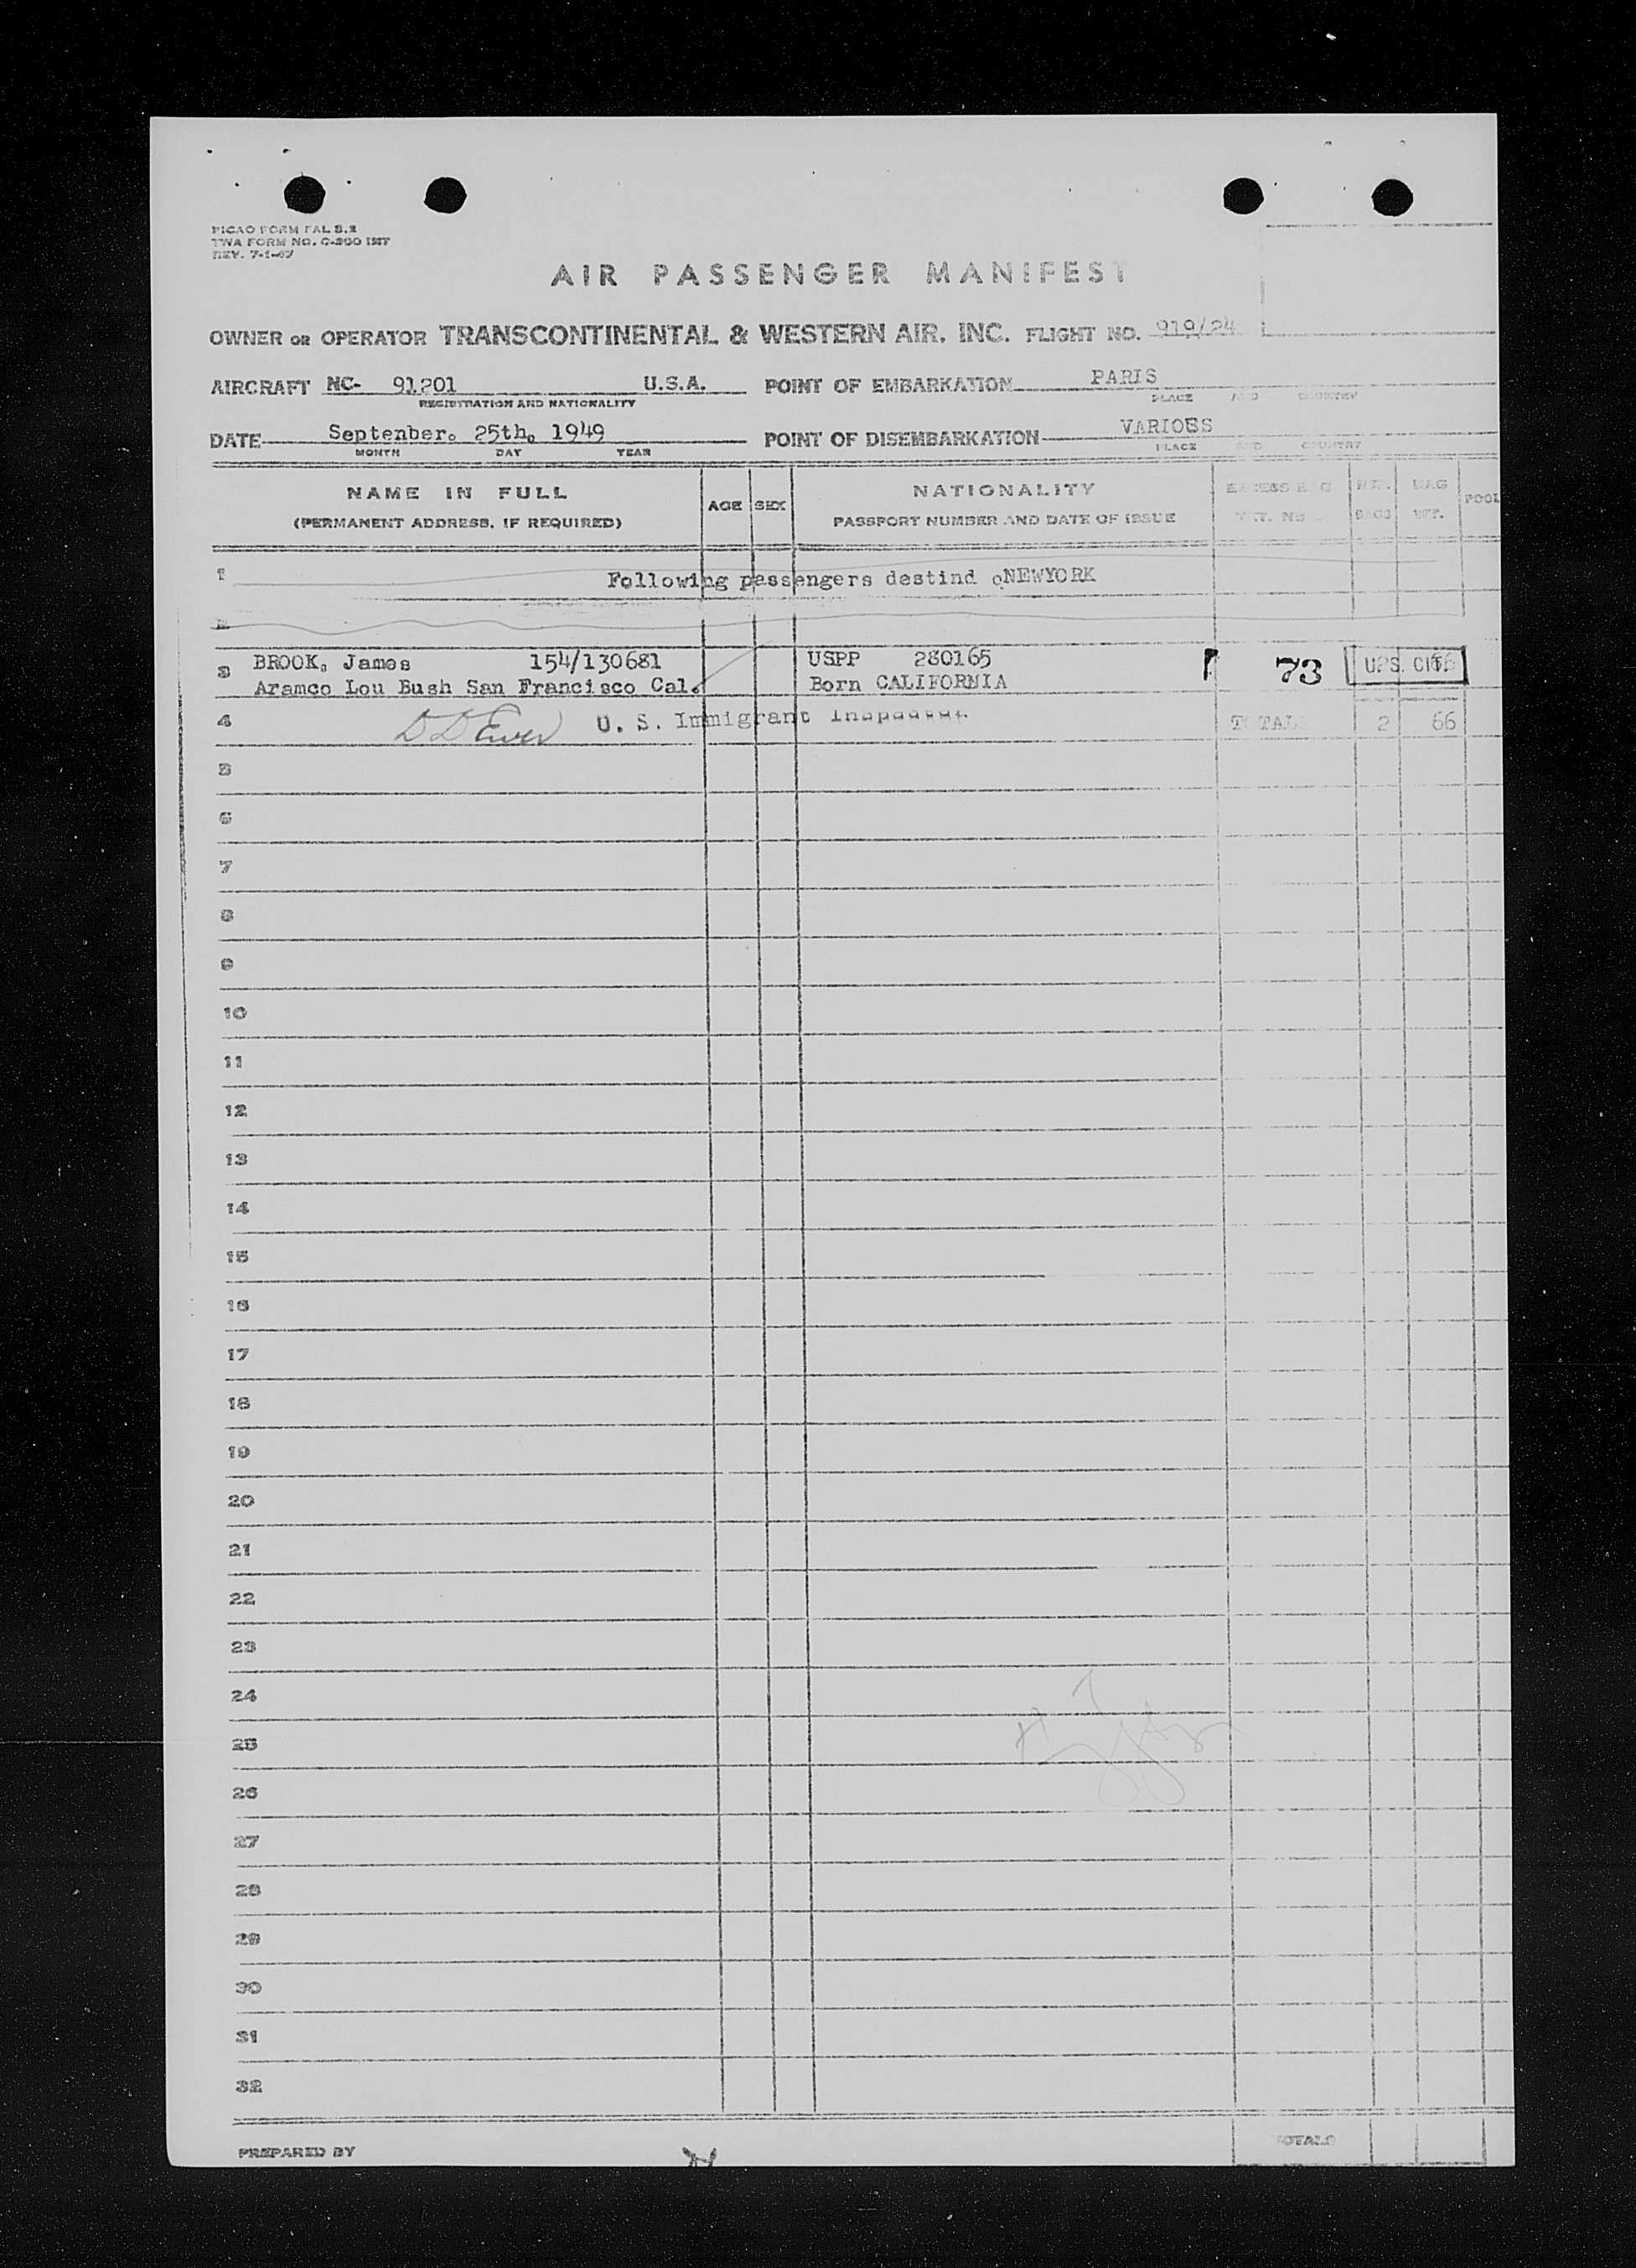 PICAO FORM FAL 8.2
TWA FORM NO. C-300 INT
REV. 7-1-47
AIR PASSENGER MANIFEST
OWNER OR OPERATOR TRANSCONTINENTAL & WESTERN AIR, INC. FLIGHT NO. 919/24
AIRCRAFT NC- 91201 U.S.A. POINT OF EMBARKATION PARIS
REGISTRATION AND NATIONALITY PLACE AND COUNTRY
DATE September. 25th. 1949 POINT OF DISEMBARKATION VARIOES
MONTH DAY YEAR PLACE AND COUNTRY
NAME IN FULL
(PERMANENT ADDRESS, IF REQUIRED)
AGE SEX
NATIONALITY
PASSPORT NUMBER AND DATE OF ISSUE
BAG
WT.
POOL
1 Following passengers destind oNEWYORK
2
3 BROOK, James 154/130681 USPP 280165 73 U.S. CIT.
Aramco Lou Bush San Francisco Cal. Born CALIFORNIA
4 U. S. Immigrant Inspector. TOTAL 2 66
5
6
7
8
9
10
11
12
13
14
15
16
17
18
19
20
21
22
23
24
25
26
27
28
29
30
31
32
PREPARED BY TOTALS